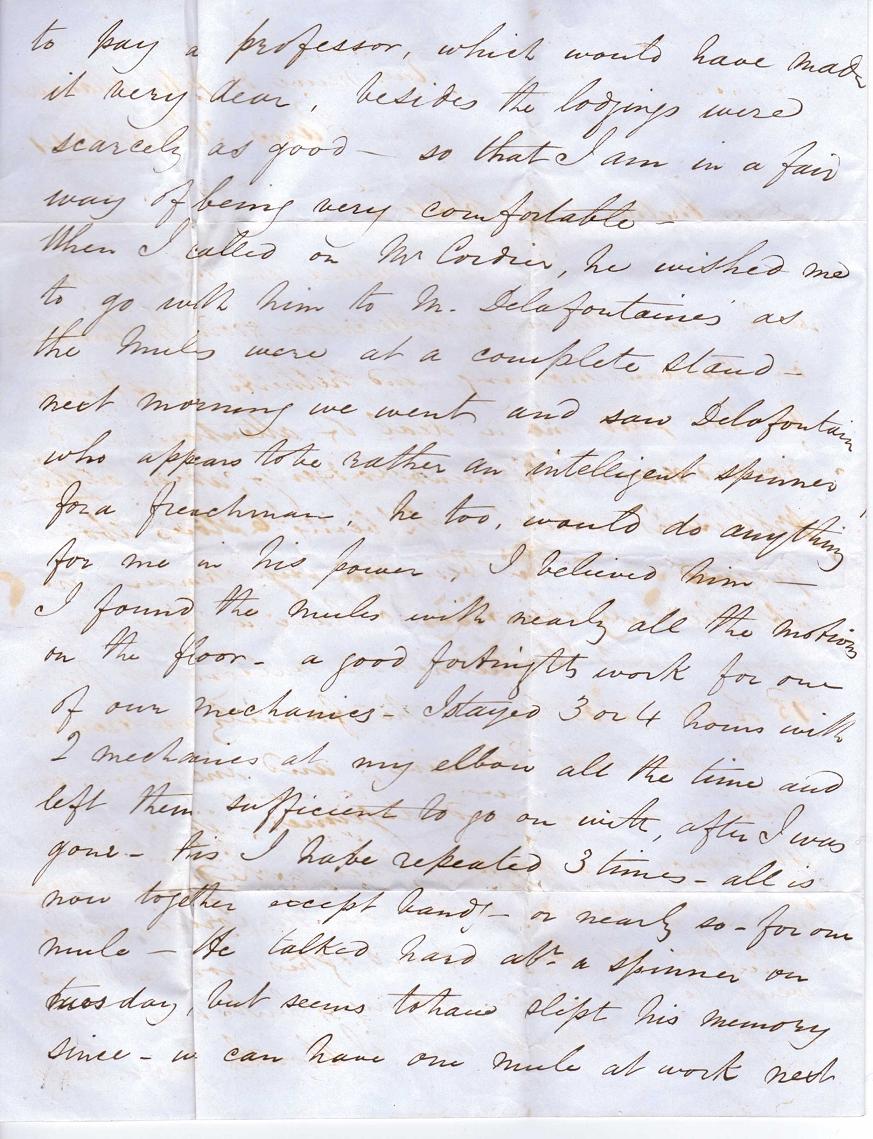 to pay a professor, which would have made
it very dear, besides the lodgings were
scarcely as good – so that I am in a fair
way of being very comfortable –
When I called on Mr Cordier, he wished me
to go with him to M. Delafontaines' as
the Mules were at a complete stand –
next morning we went and saw Delafontain
who appears to be rather an intelligent spinner
for a frenchman, he too, would do anything
for me in his power, I believed him —
I found the mules with nearly all the motions
on the floor – a good fortnights work for one
of our mechanics – I stayed 3 or 4 hours with
2 mechanics at my elbow all the time and
left them sufficient to go on with, after I was
gone – this I have repeated 3 times – all is
now together except bands – or nearly so – for one
mule — He talked hard abt. a spinner on
tuesday, but seems to have slipt his memory
since – we can have one mule at work next